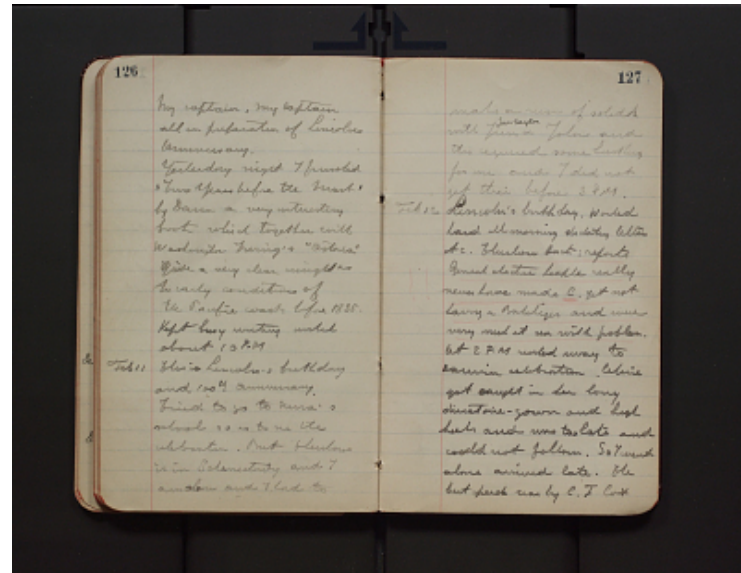 126
My captain, my captain
all in preparation of Lincolns
Anniversary.
Yesterday night I finished
"Two Years before the Mast"
by Dana a very interesting
book which together with
Washington Irving's "Astoria"
give a very clear insight in
the early conditions of
the Pacific coast before 1835.
Kept busy writing until
about 1 P.M
Feb 11 This is Lincoln's birthday
and 100th anniversary.
Tried to go to
school so as to see the
celebration. But
is in Schenectady and I
am alone and I had to
127
make a of
with and
this required some
for me and I did not
get their before 3 P.M.
Feb 12 Lincoln's birthday. Worked
hard all morning dictating letters
etc. back; reports
General electric people really
never have made C. yet not
having a Bakelizer and were
very much at sea with problem.
At 2 P.M rushed away to
celebration. Celine
got caught in her long
directoire-gown and high
heels and was too late and
could not follow. So I went
alone arrived late. The
but speech was by C. F. Cox